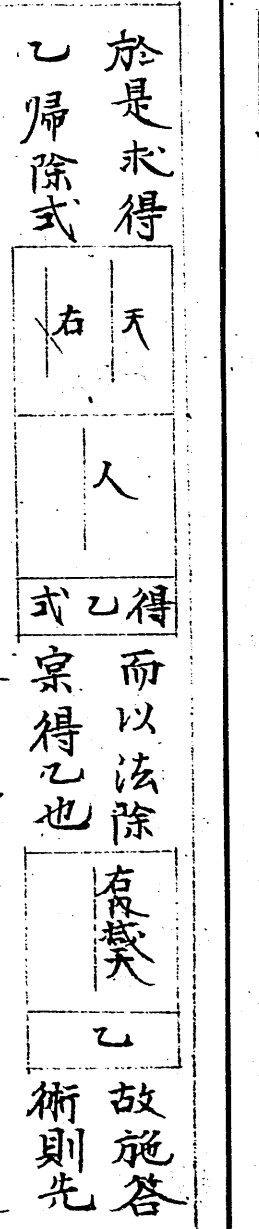 於是求得
乙帰除式
天
右
人
得乙式
而以法除
実得乙也
乙
故施答
術則先